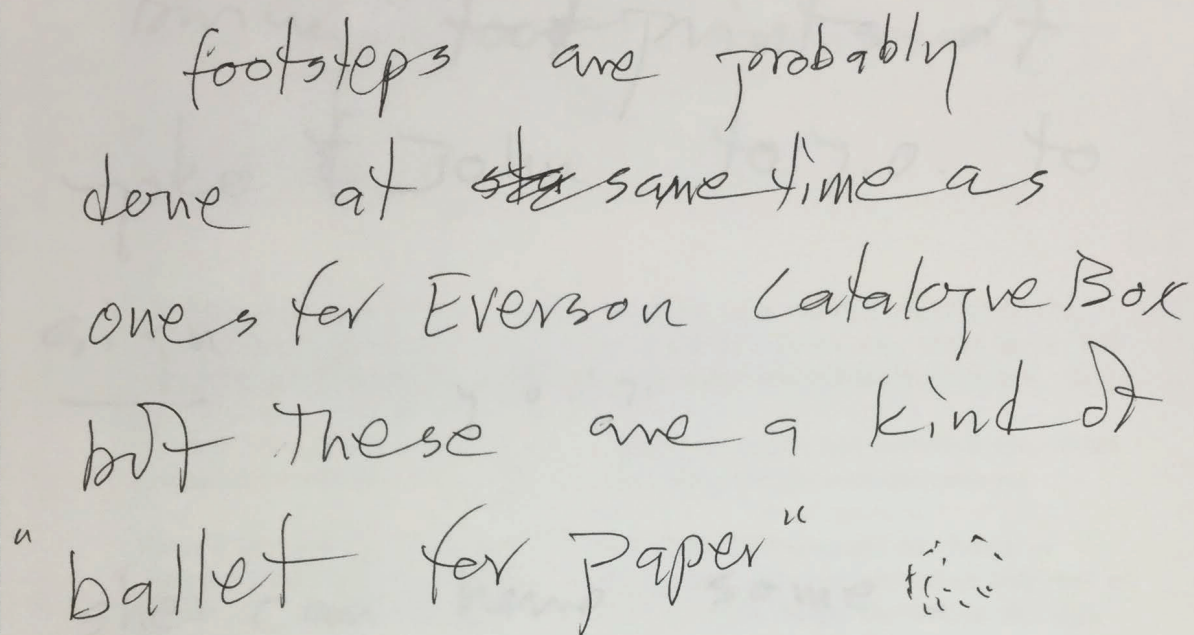 footsteps are probably
done at same time as
ones for Everson Catalogue Box
but These are a kind of
"ballet for paper"